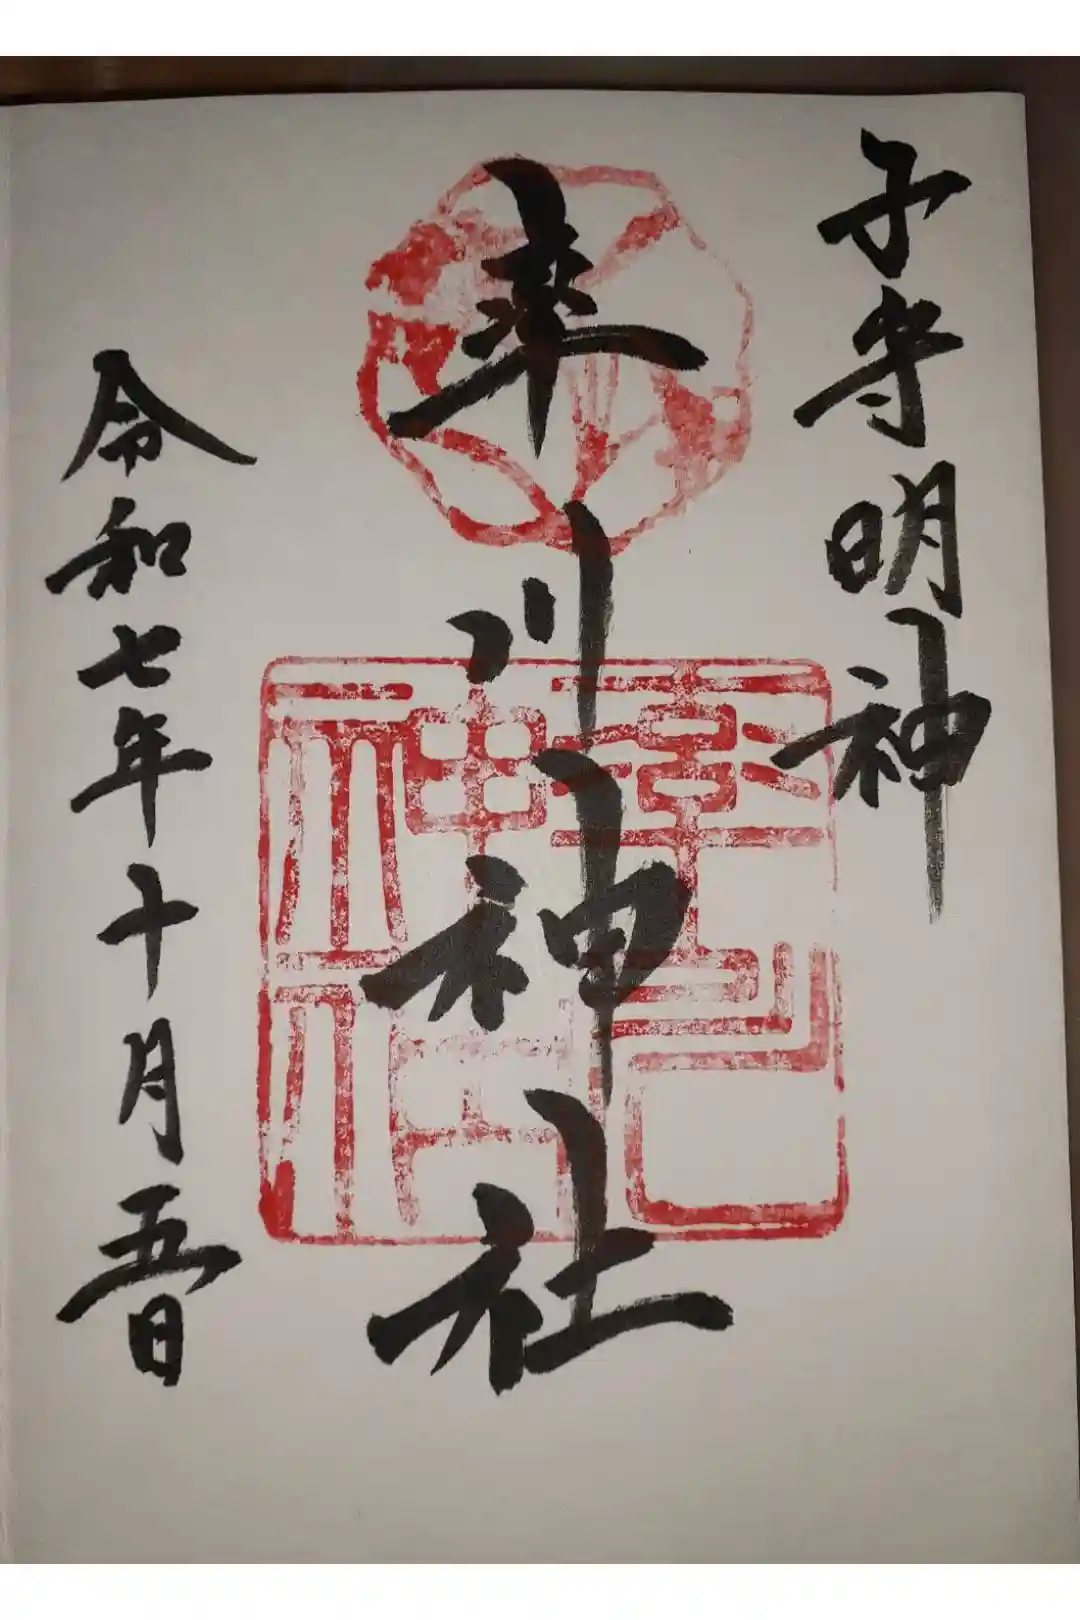 子守明神
率川神社
率川神社
令和七年十月五日